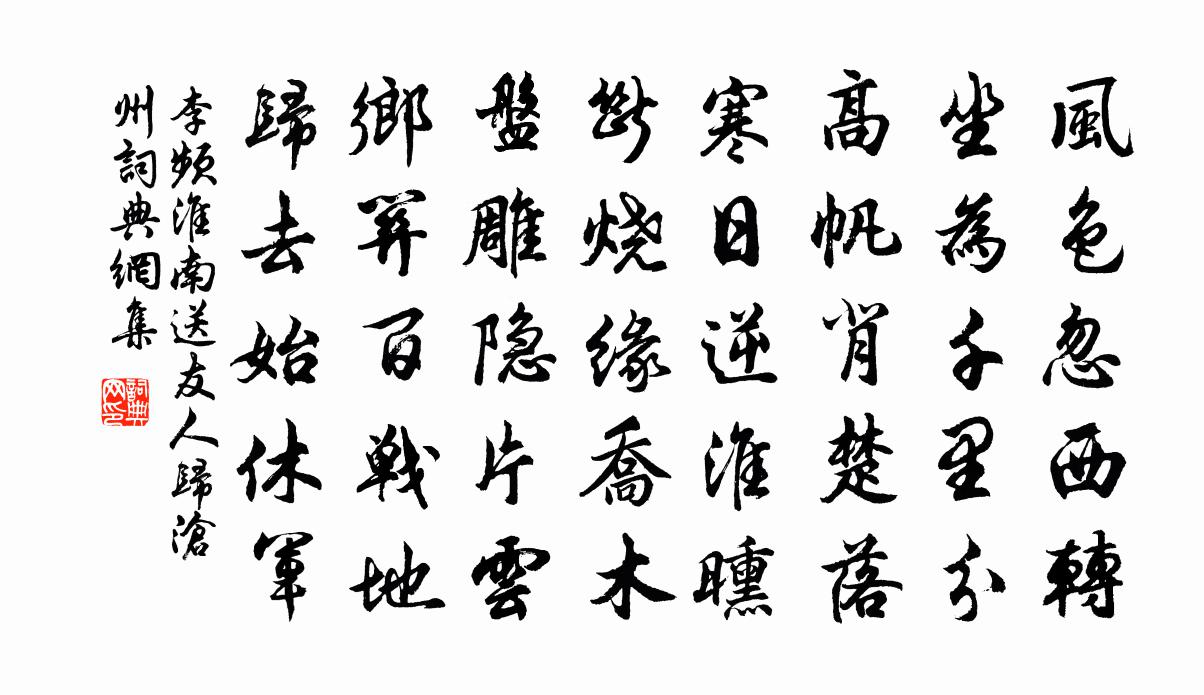 風色忽西轉
坐為千里分
高帆背楚落
寒日逆淮曛
斷燒緣喬木
盤雕隐片雲
鄉關百戦地
歸去始休軍
李頻淮南送友人歸滄
州詞典網集
詞典
网印